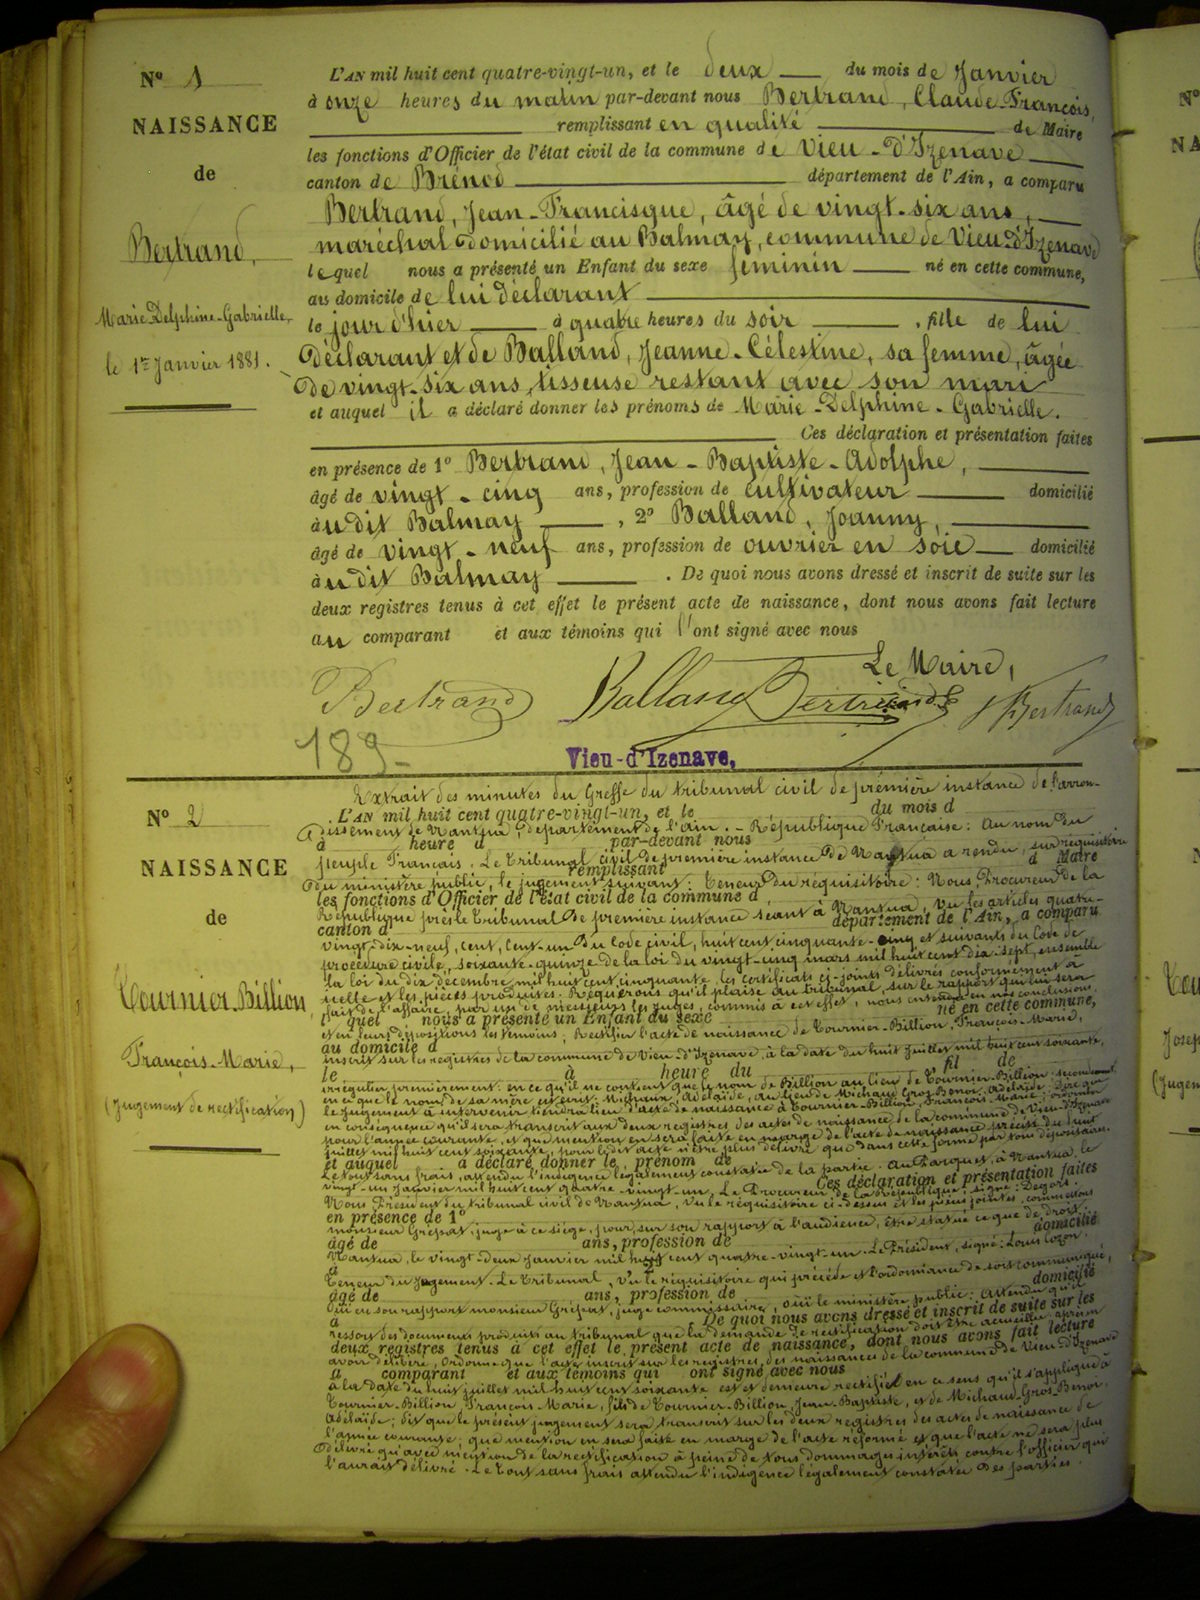 Nº 1
NAISSANCE
de
Bertrand,
Marie-Delphine-Gabrielle,
le 1er Janvier 1881.
L'AN mil huit cent quatre-vingt-un, et le deux du mois de Janvier
à onze heures du matin par-devant nous Bertrand, Claude-François,
remplissant en qualité de Maire
les fonctions d'Officier de l'état civil de la commune de Vieu-d'Izenave
canton de Brénod département de l'Ain, a comparu
Bertrand, Jean-Francisque, âgé de vingt-six ans,
maréchal domicilié au Balmay, commune de Vieu-d'Izenave
lequel nous a présenté un Enfant du sexe féminin né en cette commune,
au domicile de lui déclarant
le jour d'hier à quatre heures du soir, fille de lui
déclarant et de Balland, Jeanne-Célestine, sa femme, âgée
de vingt-six ans, tisseuse restant avec son mari
et auquel il a déclaré donner les prénoms de Marie-Delphine-Gabrielle.
Ces déclaration et présentation faites
en présence de 1º Bertrand, Jean-Baptiste-Adolphe,
âgé de vingt-cinq ans, profession de cultivateur domicilié
au dit Balmay, 2º Balland, Joanny,
âgé de vingt-neuf ans, profession de ouvrier en soie domicilié
au dit Balmay. De quoi nous avons dressé et inscrit de suite sur les
deux registres tenus à cet effet le présent acte de naissance, dont nous avons fait lecture
au comparant et aux témoins qui l'ont signé avec nous
Le Maire,
Bertrand Balland Bertrand Bertrand
189
Vieu-d'Izenave,
Nº 2
NAISSANCE
de
Tournier-Billion,
François-Marie,
(Jugement de rectification)
Extrait des minutes du Greffe du tribunal civil de première instance de l'arron-
L'AN mil huit cent quatre-vingt-un, et le du mois d
dissement de Nantua, département de l'Ain. - République Française: Au nom du
à heure d par-devant nous
peuple Français. Le Tribunal civil de première instance de Nantua a rendu, sur réquisitoire
remplissant d Maire
du ministère public, le jugement suivant: Teneur du réquisitoire: Nous, Procureur de la
les fonctions d'Officier de l'état civil de la commune d
République près le Tribunal de première instance séant à Nantua, Vu les articles quatre-
canton d département de l'Ain, a comparu
vingt-dix-neuf, cent, cent-un du Code civil, huit cent cinquante-cinq et suivants du Code de
procédure civile, soixante-quinze de la loi du vingt-cinq mars mil huit cent dix-sept, ensemble
la loi du dix décembre mil huit cent cinquante, les certificats ci-joints délivrés conformément à
icelle et les pièces produites: Requérons qu'il plaise au tribunal, sur le rapport qui lui sera
fait de l'affaire, par un de messieurs les juges, commis à cet effet, nous entendu en nos conclusions
lequel nous a présenté un Enfant du sexe né en cette commune,
et en leurs dépositions les témoins, Rectifier l'acte de naissance de Tournier-Billion, François-Marie,
au domicile d
inscrit sur les registres de la commune de Vieu-d'Izenave, à la date du huit juillet mil huit cent soixante,
le à heure du fil de
irrégulier premièrement: en ce qu'il ne contient que le nom de Billion au lieu de Tournier-Billion, secondement:
en ce que le nom de sa mère est écrit: Michaux, Adélaïde, au lieu de Michaud-Gros-Benoi, Adélaïde; Dire que
le jugement à intervenir tiendra lieu d'acte de naissance à Tournier-Billion, François-Marie; ordonner
en conséquence qu'il sera transcrit aux deux registres des actes de naissance de la commune de Vieu-d'Izenave
pour l'année courante, et que mention en sera faite en marge de l'acte de naissance précité du huit
juillet mil huit cent soixante, pour le dit acte n'être plus délivré que dans cette forme par tous dépositaires.
et auquel a déclaré donner le prénom de
Le tout sans frais, attendu l'indigence légalement constatée de la partie. Au Parquet, à Nantua, le
Ces déclaration et présentation faites
vingt-un janvier mil huit cent quatre-vingt-un. Le Procureur de la République, signé:
Nous Président du tribunal civil de Nantua, Vu le réquisitoire ci-dessus et les pièces jointes, commettons
en présence de 1º
monsieur Grépat, juge à ce siège, pour, sur son rapport à l'audience, être statué ce que de droit.
âgé de ans, profession de domicilié
Nantua, le vingt-deux janvier mil huit cent quatre-vingt-un. Le Président, signé: Louis
à 2º
Teneur du jugement. Le Tribunal, Vu le réquisitoire qui précède et l'ordonnance de soit communiqué,
âgé de ans, profession de domicilié
Oui en son rapport monsieur Grépat, juge commissaire, ouï le ministère public: Attendu qu'il
à De quoi nous avons dressé et inscrit de suite sur les
ressort des documents produits au tribunal que la demande de rectification doit être accueillie; Après en
deux registres tenus à cet effet le présent acte de naissance, dont nous avons fait lecture
avoir délibéré, Ordonne que l'acte inscrit sur les registres des naissances de la commune de Vieu-d'Izenave
a comparant et aux témoins qui ont signé avec nous
à la date du huit juillet mil huit cent soixante est et demeure rectifié en ce sens qu'il s'applique à
Tournier-Billion François-Marie, fils de Tournier-Billion, Jean-Baptiste, et de Michaud-Gros-Benoi,
Adélaïde; dit que le présent jugement sera transcrit sur les deux registres des actes de naissance de
l'année courante; que mention en sera faite en marge de l'acte réformé et que l'acte ne sera plus
délivré qu'avec mention de la rectification à peine de tous dommages intérêts contre l'officier qui
l'aurait délivré. Le tout sans frais attendu l'indigence légalement constatée des parties.